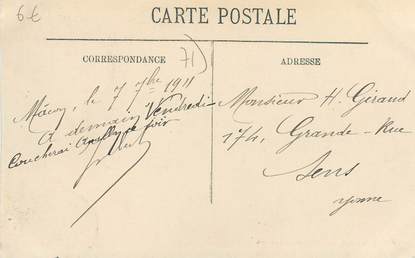 6€
CARTE POSTALE
CORRESPONDANCE
71)
ADRESSE
Mâcon, le 7 7bre 1911
A demain Vendredi
Coucherai ce soir
Monsieur H. Giraud
174, Grande-Rue
Sens
Yonne